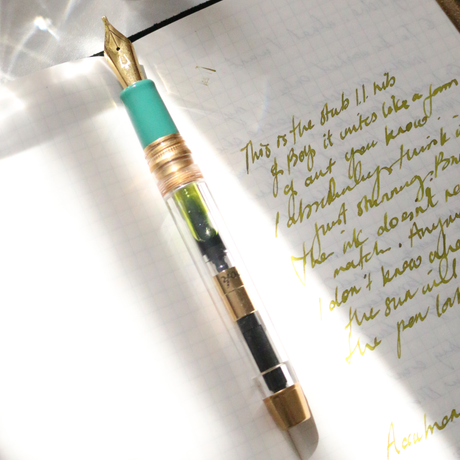 This is the stub 1.1 nib
it writes like a form
of art you know.
I absolutely think i
just stunning. Bu
The ink doesn't
match. Anyw
I don't know
the sun will
the pen